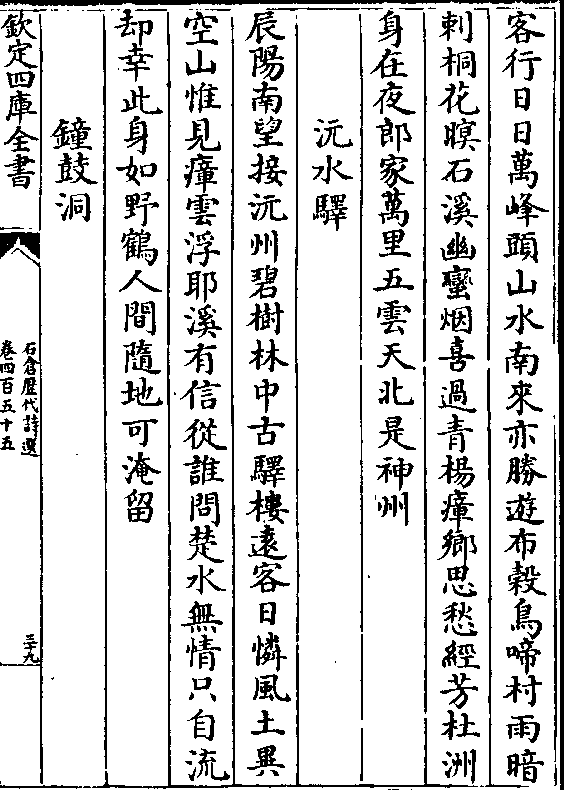 客行日日萬峰頭山水南來亦勝遊布穀鳥啼村雨暗
刺桐花暝石溪幽蠻烟喜過青楊瘴鄉思愁經芳杜洲
身在夜郎家萬里五雲天北是神州
沅水驛
辰陽南望接沅州碧樹林中古驛樓遠客日憐風土異
空山惟見瘴雲浮耶溪有信從誰問楚水無情只自流
却幸此身如野鶴人間隨地可淹留
鐘鼓洞
欽定四庫全書
石倉歷代詩選
卷四百五十五
三十九